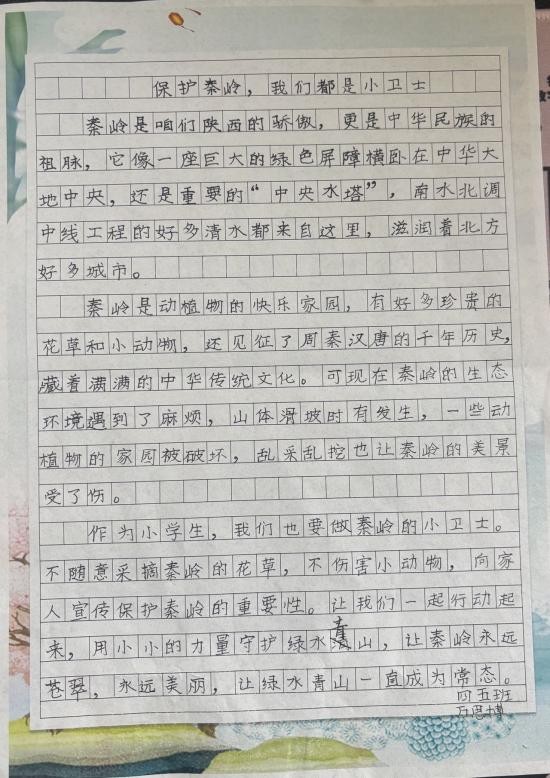 保护秦岭，我们都是小卫士
秦岭是咱们陕西的骄傲，更是中华民族的
祖脉，它像一座巨大的绿色屏障横卧在中华大
地中央，还是重要的“中央水塔”，南水北调
中线工程的好多清水都来自这里，滋润着北方
好多城市。
秦岭是动植物的快乐家园，有好多珍贵的
花草和小动物，还见证了周秦汉唐的千年历史，
藏着满满的中华传统文化。可现在秦岭的生态
环境遇到了麻烦，山体滑坡时有发生，一些动
植物的家园被破坏，乱采乱挖也让秦岭的美景
受了伤。
作为小学生，我们也要做秦岭的小卫士。
不随意采摘秦岭的花草，不伤害小动物，向家
人宣传保护秦岭的重要性。让我们一起行动起
来，用小小的力量守护绿水青山，让秦岭永远
苍翠，永远美丽，让绿水青山一直成为常态。
四五班